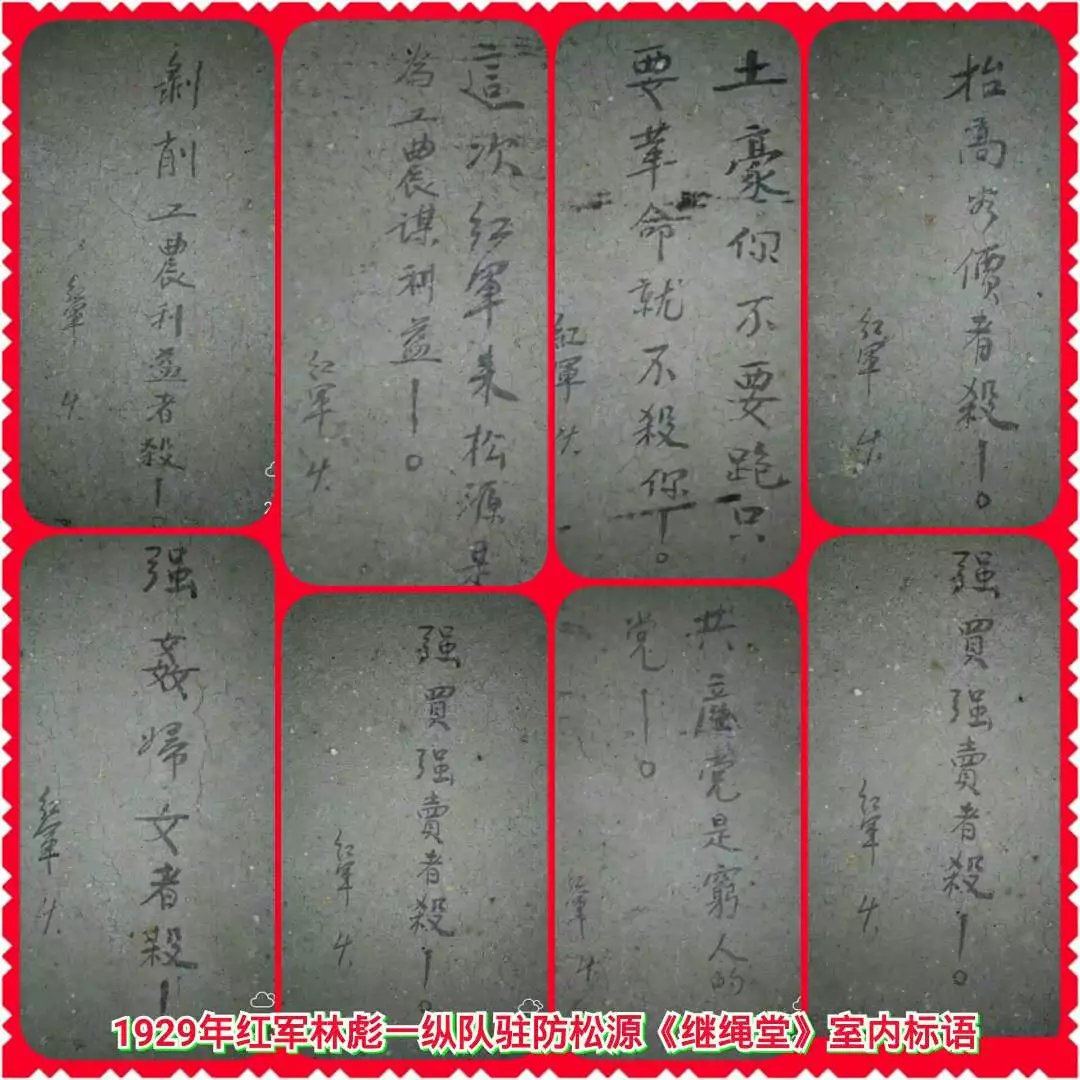 剝削工農利益者殺！
紅軍
這次紅軍來松源是
為工農謀利益！。
紅軍
土豪你不要跑只
要革命就不殺你！。
紅軍
抬高谷價者殺！。
紅軍
强姦婦女者殺！
紅軍
强買强賣者殺！。
紅軍
共產党是窮人的
党！。
紅軍
强買强賣者殺！。
紅軍
1929年红军林彪一纵队驻防松源《继绳堂》室内标语